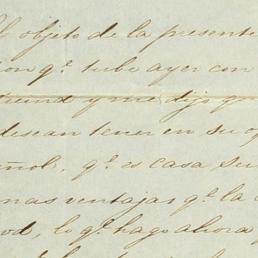 el objeto de la presente
ion q.e tube ayer con
y me dijo que
desean tener en su
ñol, q.e es casa su
mas ventajas q.e la
od, lo q.e hago ahora y